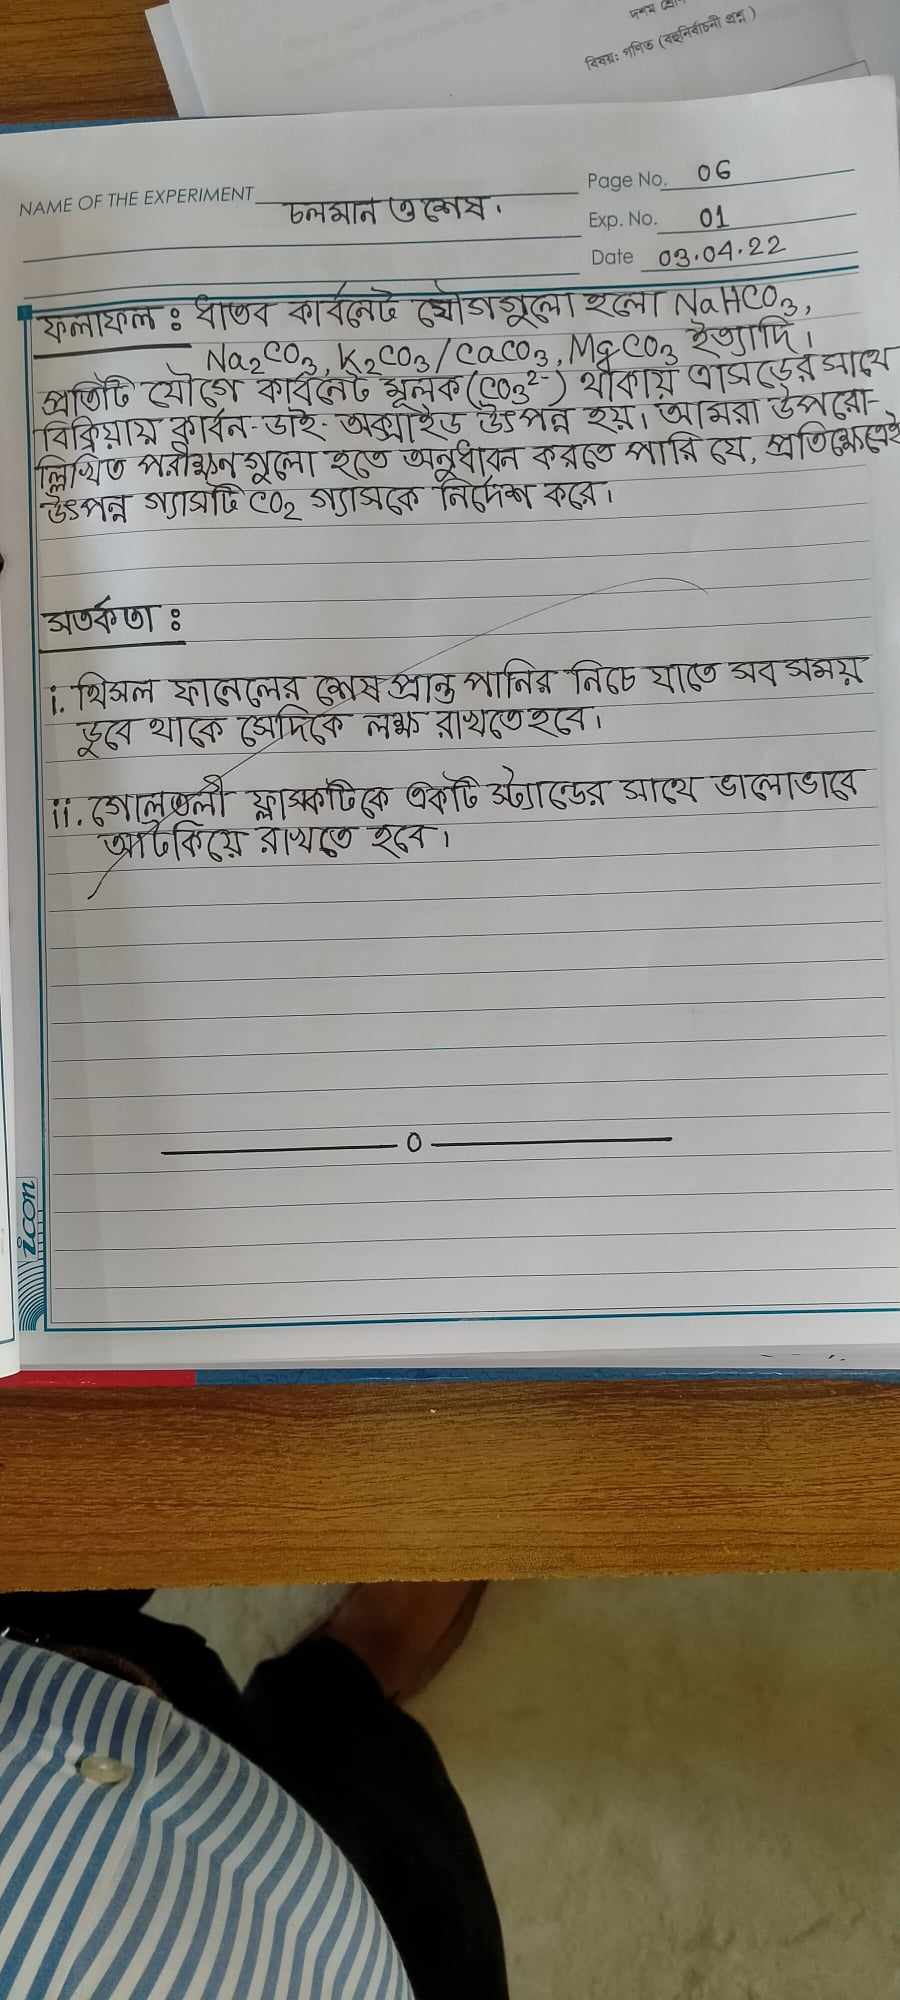 দশম
বিষয়: গণিত (বহুনির্বাচনী প্রশ্ন)
NAME OF THE EXPERIMENT চলমান ও শেষ.
Page No. 06
Exp. No. 01
Date 03.04.22
ফলাফল : ধাতব কার্বনেট যৌগগুলো হলো NaHCO3,
Na2CO3, K2CO3/CaCO3, MgCO3 ইত্যাদি।
প্রতিটি যৌগে কার্বনেট মূলক (CO3²⁻) থাকায় এসিডের সাথে
বিক্রিয়ায় কার্বন-ডাই-অক্সাইড উৎপন্ন হয়। আমরা উপরো-
ল্লিখিত পরীক্ষনগুলো হতে অনুধাবন করতে পারি যে, প্রতিক্ষেত্রেই
উৎপন্ন গ্যাসটি CO2 গ্যাসকে নির্দেশ করে।
সতর্কতা :
i. থিসল ফানেলের শেষ প্রান্ত পানির নিচে যাতে সব সময়
ডুবে থাকে সেদিকে লক্ষ রাখতে হবে।
ii. গোলতলী ফ্লাস্কটিকে একটি স্ট্যান্ডের সাথে ভালোভাবে
আটকিয়ে রাখতে হবে।
0
icon